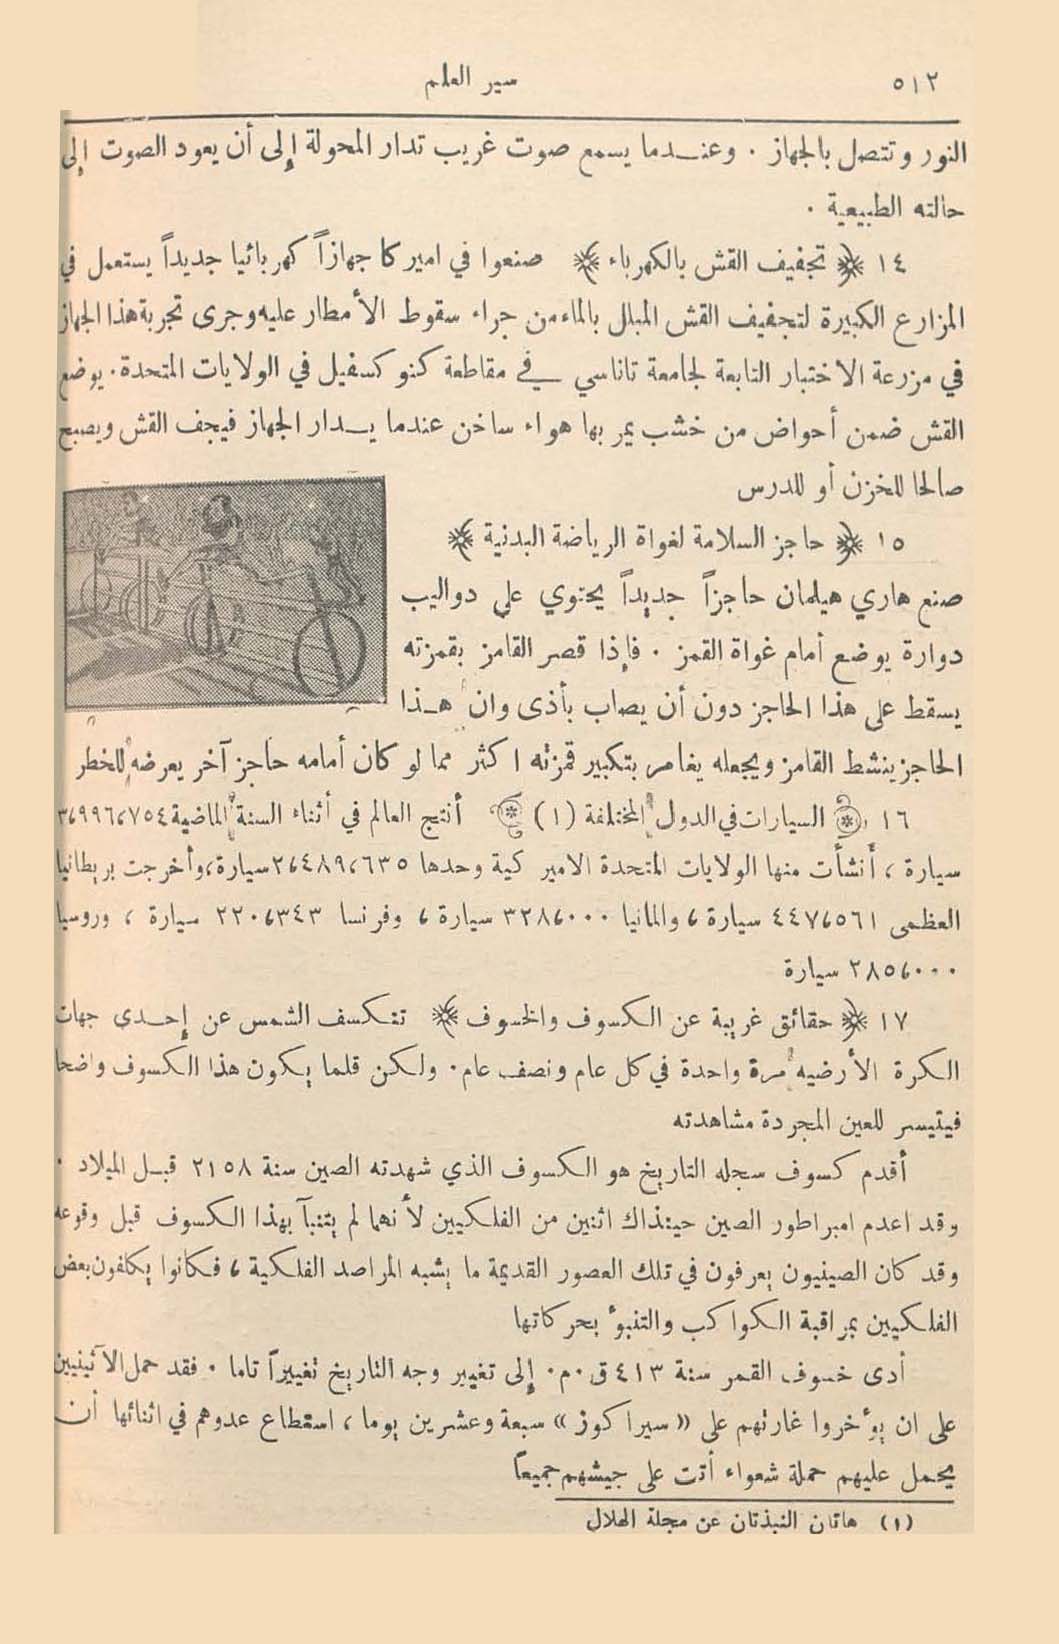 ٥١٢
سير العلم
النور وتتصل بالجهاز . وعندما يسمع صوت غريب تدار المحولة إلى أن يعود الصوت إلى
حالته الطبيعية .
١٤ ﴿ تجفيف القش بالكهرباء ﴾ صنعوا في اميركا جهازاً كهربائيا جديداً يستعمل في
المزارع الكبيرة لتجفيف القش المبلل بالماء من جراء سقوط الأمطار عليه وجرى تجربة هذا الجهاز
في مزرعة الاختبار التابعة لجامعة تاناسي في مقاطعة كنوكسفيل في الولايات المتحدة . يوضع
القش ضمن أحواض من خشب يمر بها هواء ساخن عندما يدار الجهاز فيجف القش ويصبح
صالحا للخزن أو للدرس
١٥ ﴿ حاجز السلامة لغواة الرياضة البدنية ﴾
صنع هاري هيلمان حاجزاً جديداً يحتوي على دواليب
دوارة يوضع أمام غواة القمز . فإذا قصر القامز بقمزته
يسقط على هذا الحاجز دون أن يصاب بأذى وان هذا
الحاجز ينشط القامز ويجعله يغامر بتكبير قمزته اكثر مما لو كان أمامه حاجز آخر يعرضه للخطر
١٦ ﴿ السيارات في الدول المختلفة (١) ﴾ أنتج العالم في أثناء السنة الماضية ٣،٩٩٦،٧٥٤
سيارة ، أنشأت منها الولايات المتحدة الاميركية وحدها ٢،٤٨٩،٦٣٥ سيارة، وأخرجت بريطانيا
العظمى ٤٤٧،٥٦١ سيارة ، والمانيا ٣٢٨،٠٠٠ سيارة ، وفرنسا ٢٢٠،٣٤٣ سيارة ، وروسيا
٢٨٥،٠٠٠ سيارة
١٧ ﴿ حقائق غريبة عن الكسوف والخسوف ﴾ تنكسف الشمس عن إحدى جهات
الكرة الأرضيه مرة واحدة في كل عام ونصف عام . ولكن قلما يكون هذا الكسوف واضحا
فيتيسر للعين المجردة مشاهدته
أقدم كسوف سجله التاريخ هو الكسوف الذي شهدته الصين سنة ٢١٥٨ قبل الميلاد .
وقد اعدم امبراطور الصين حينذاك اثنين من الفلكيين لأنهما لم يتنبآ بهذا الكسوف قبل وقوعه
وقد كان الصينيون يعرفون في تلك العصور القديمة ما يشبه المراصد الفلكية ، فكانوا يكلفون بعض
الفلكيين بمراقبة الكواكب والتنبوء بحركاتها
أدى خسوف القمر سنة ٤١٣ ق . م . إلى تغيير وجه التاريخ تغييراً تاما . فقد حمل الآثينيين
على ان يؤخروا غارتهم على «سيراكوز» سبعة وعشرين يوما ، استطاع عدوهم في اثنائها أن
يحمل عليهم حملة شعواء أتت على جيشهم جميعاً
(١) هاتان النبذتان عن مجلة الهلال